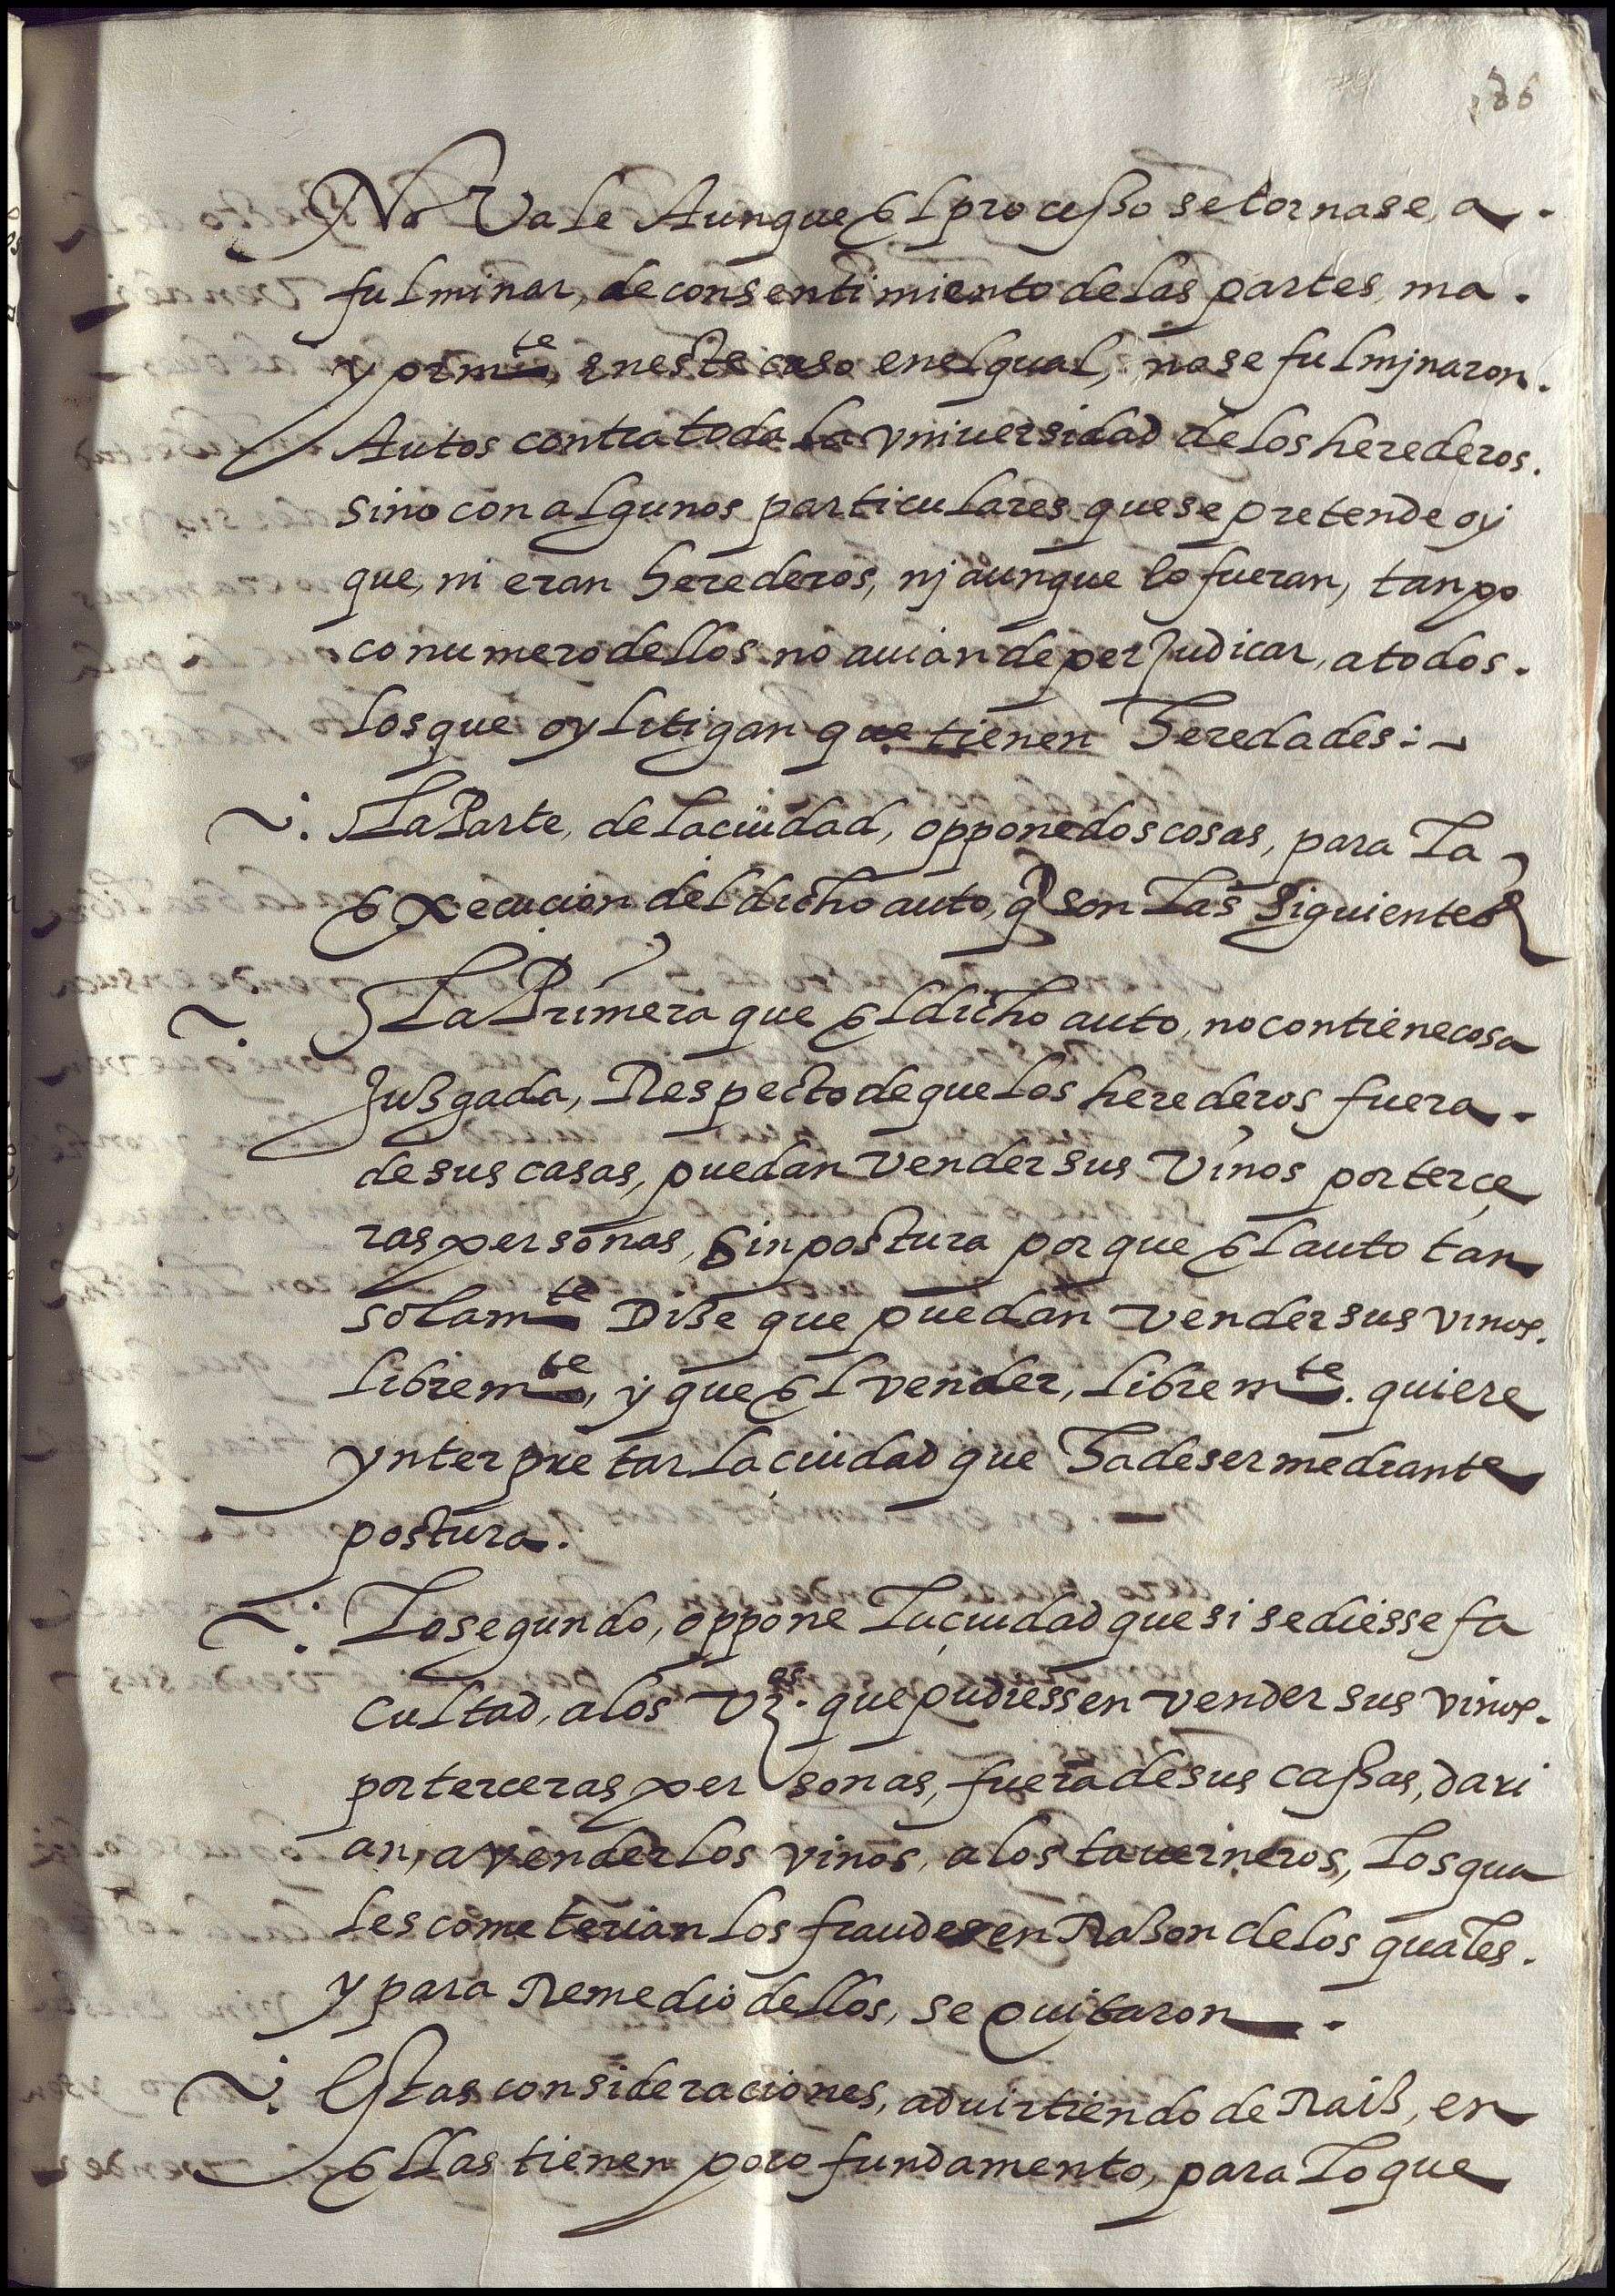 186
No Vale Aunque El processo se tornase, a.
fulminar, de consentimiento de las partes, ma.
yormte, en este caso en el qual, no se fulmjnaron.
Autos contra toda la vniuersidad de los herederos.
sino con algunos particulares que se pretende oy
que, ni eran herederos, nj aunque lo fueran, tan po
co numero dellos no auian de perJudicar, a todos.
los que oy litigan que tienen heredades:-
~. La Parte, de la ciudad, oppone dos cosas, para La
Execucion del dicho auto, q son Las Siguientes
~. La Primera que El dicho auto, no contiene cosa
Jusgada, Respecto de que los herederos fuera.
de sus casas, puedan vender sus vinos por terçe
ras personas, Sin postura por que El auto tan
solamte Dise que puedan vender sus vinos.
libremte, y que El vender, libremte. quiere
ynterpretar la çiudad que ha de ser mediante
postura.
~. Lo segundo, oppone La çiudad que si se diesse fa
cultad, a los vzos. que pudiessen vender sus vinos.
por terceras personas, fuera de sus cassas, dari
an, a vender los vinos, a los tauerneros, Los qua
les cometerian los fraudes en Rason de los quales.
y para Remedio dellos, se quitaron.
~. Estas consideraciones, aduirtiendo de Rais, en
Ellas tienen poco fundamento, para Lo que